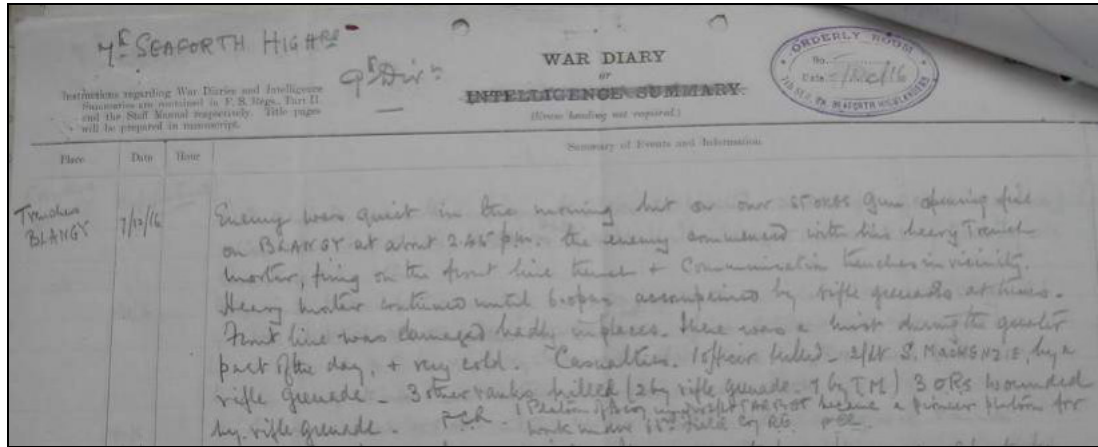 7th SEAFORTH HIGHRS
9th Divn
WAR DIARY
or
INTELLIGENCE SUMMARY.
(Erase heading not required.)
Instructions regarding War Diaries and Intelligence
Summaries are contained in F. S. Regs., Part II.
and the Staff Manual respectively. Title pages
will be prepared in manuscript.
ORDERLY ROOM
No.
Date /Dec/16
SEAFORTH HIGHLANDERS
Place Date Hour Summary of Events and Information
Trenches
BLANGY
7/12/16
Enemy was quiet in the morning but on our STOKES Gun opening fire
on BLANGY at about 2.45 p.m. the enemy commenced with his heavy Trench
mortar, firing on the front line trench + Communication trenches in vicinity.
Heavy mortar continued until accompanied by rifle grenades at times.
Front line was damaged badly in places. There was a mist during the greater
part of the day, + very cold. Casualties. 1 officer killed - 2/Lt S. MACKENZIE, by a
rifle grenade - 3 other ranks killed (2 by rifle grenade. 1 by TM) 3 ORs wounded
by rifle grenade. 1 Platoon became a pioneer platoon for
work under Field Coy RE.